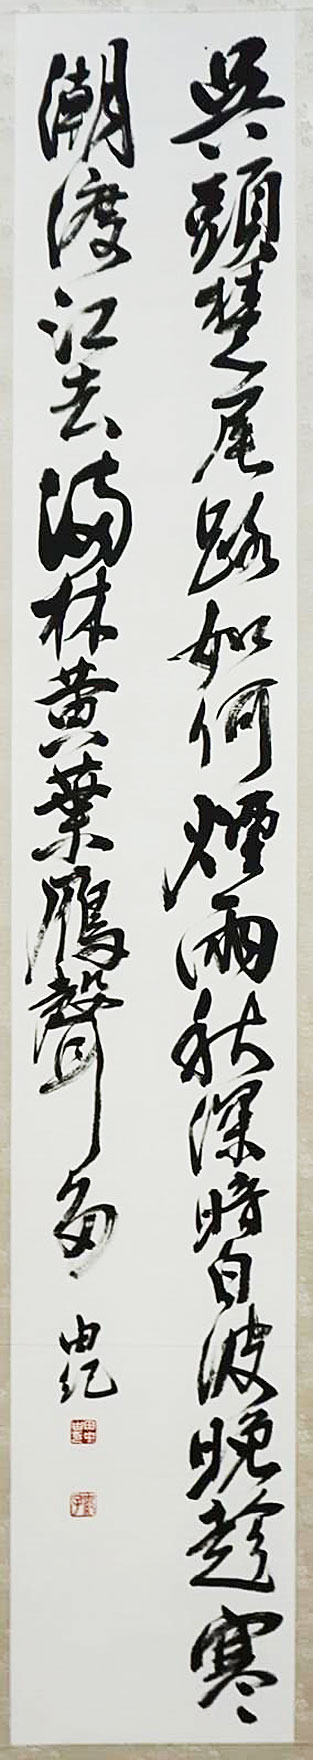 吳頭楚尾路如何煙雨秋深暗白波晚趁寒
潮渡江去滿林黃葉雁聲多
由紀